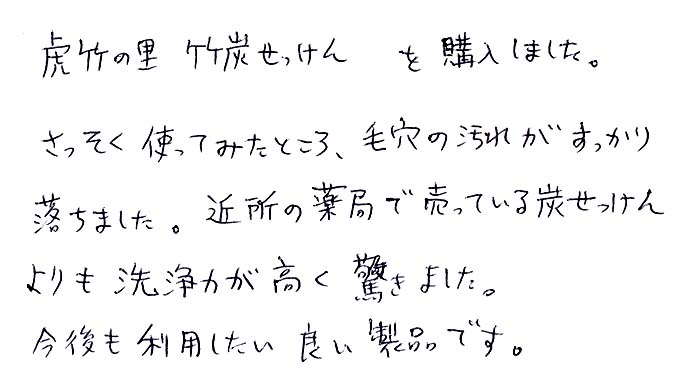 虎竹の里 竹炭せっけん を購入しました。
さっそく使ってみたところ、毛穴の汚れがすっかり
落ちました。近所の薬局で売っている炭せっけん
よりも洗浄力が高く驚きました。
今後も利用したい良い製品です。